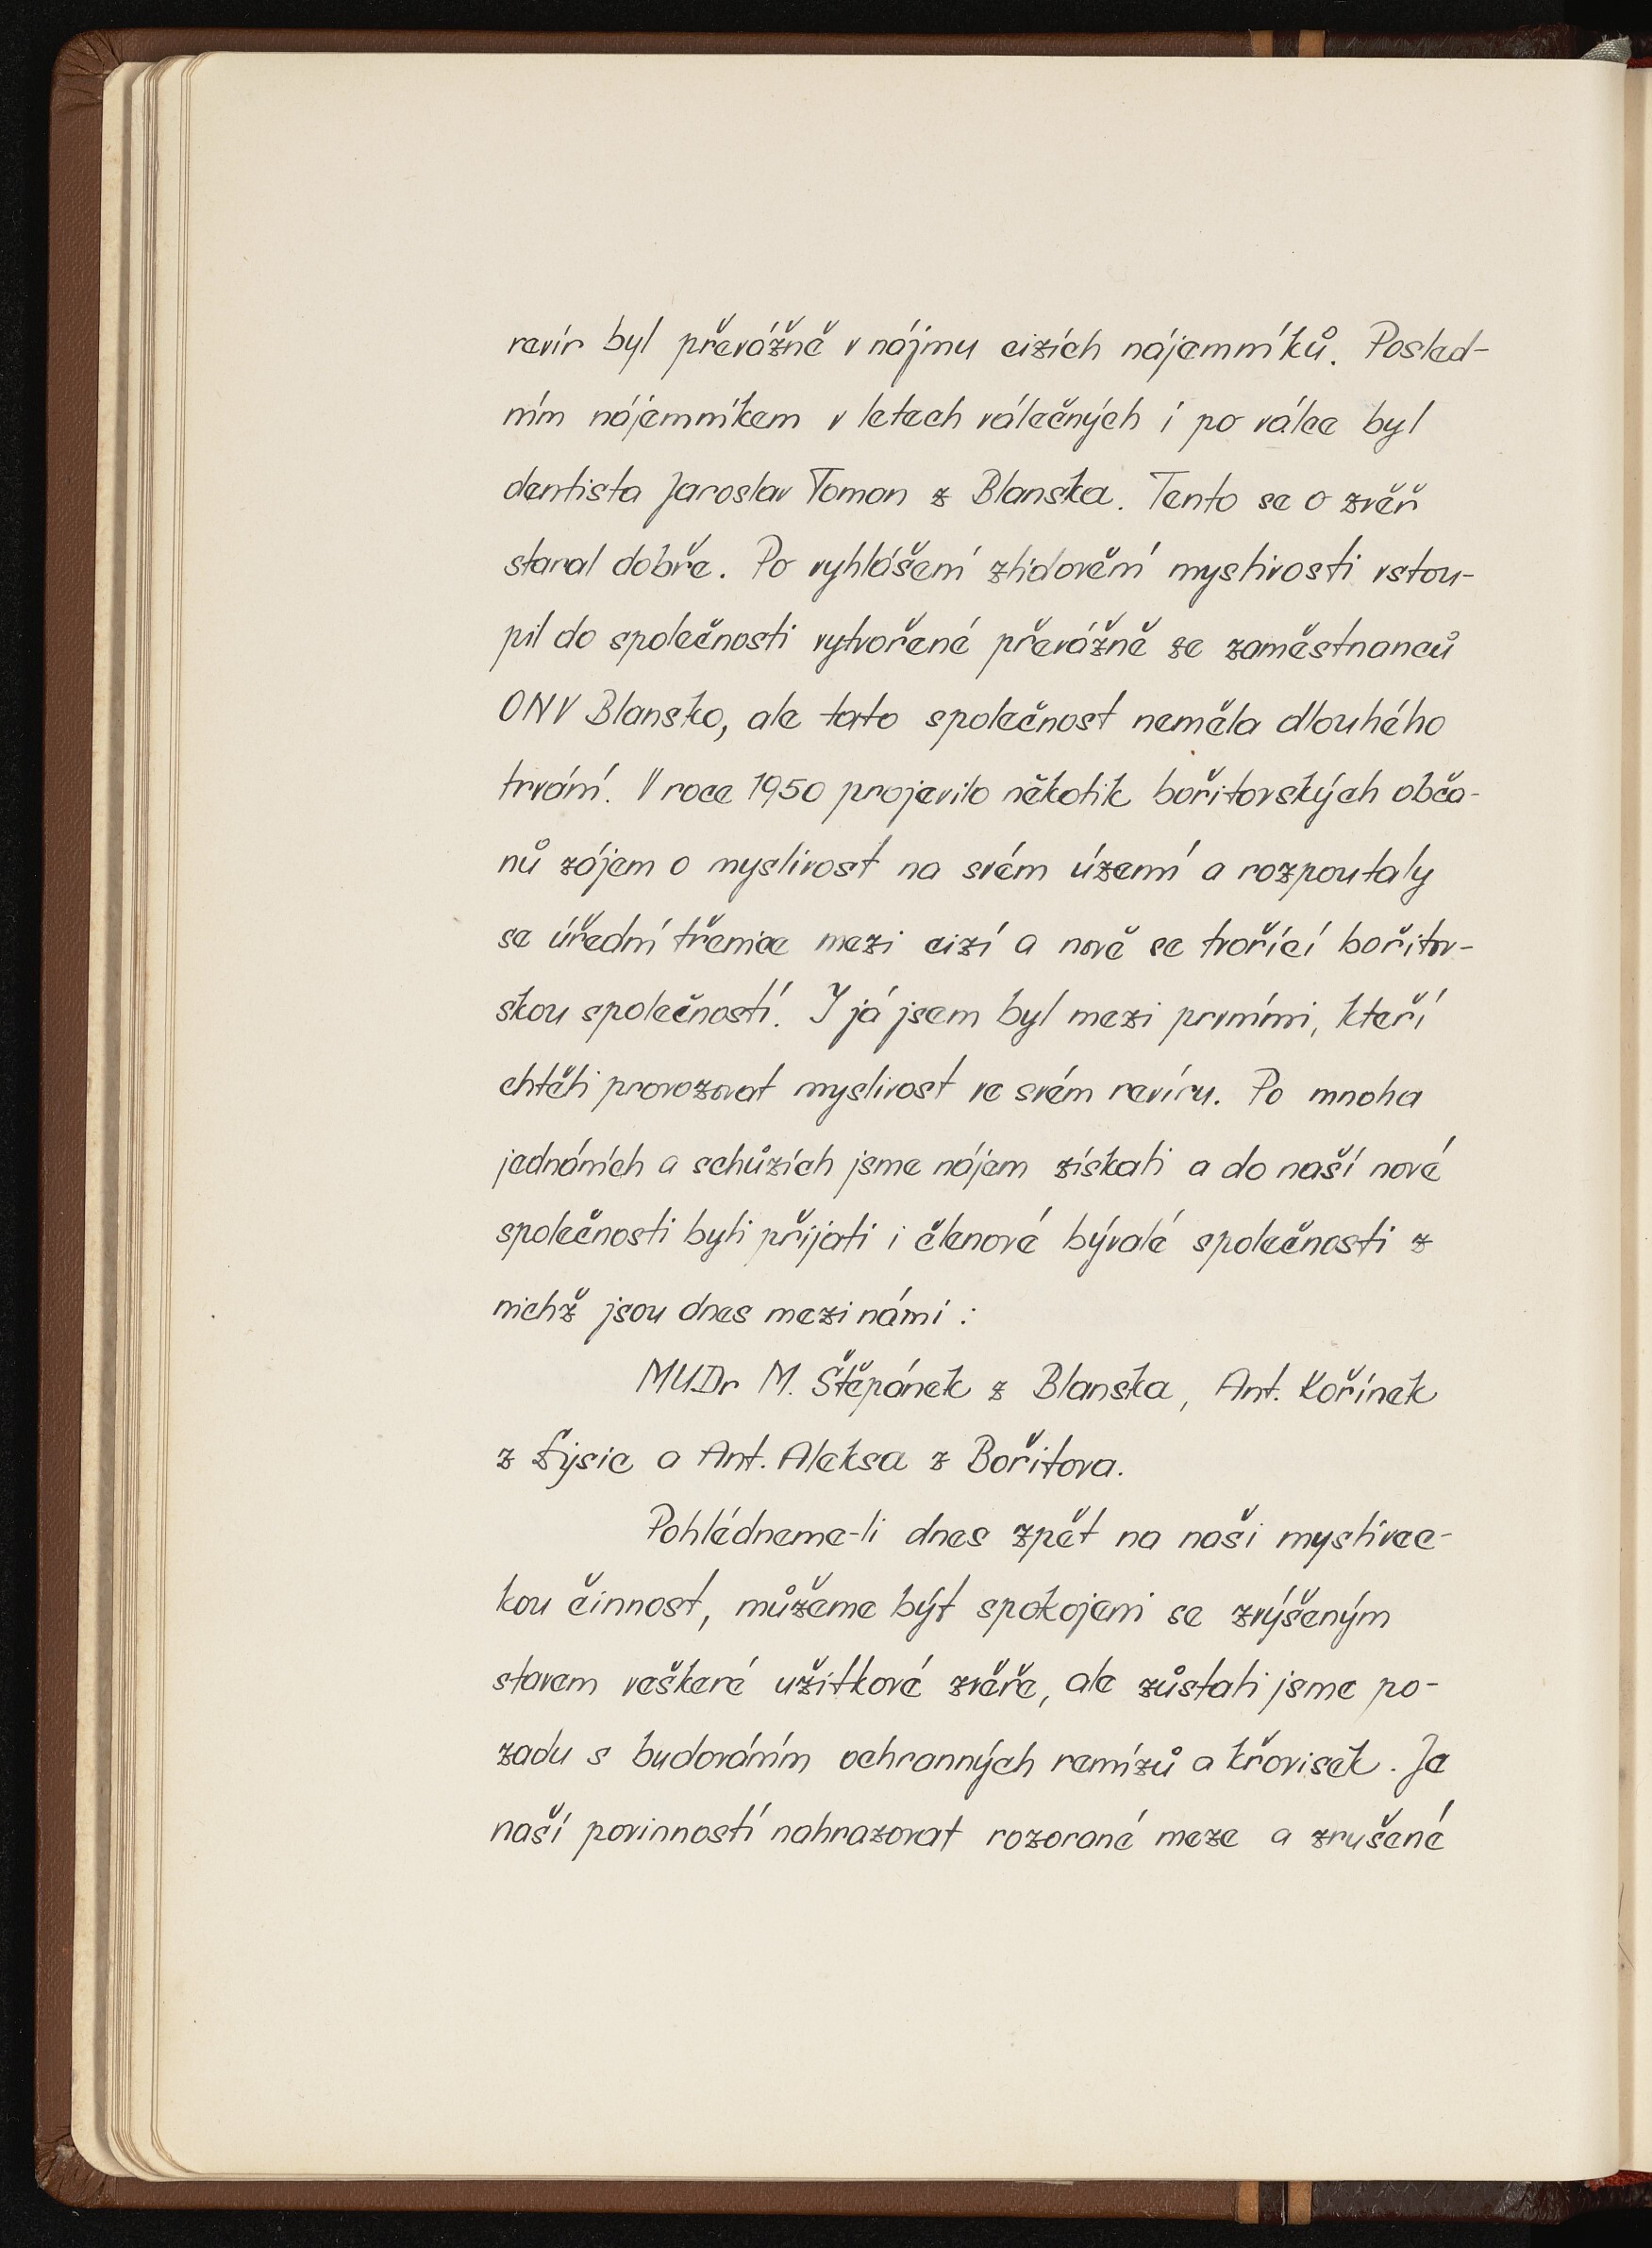 revír byl převážně v nájmu cizích nájemníků. Posled-
ním nájemníkem v letech válečných i po válce byl
dentista Jaroslav Toman z Blanska. Tento se o zvěř
staral dobře. Po vyhlášení zlidovění myslivosti vstou-
pil do společnosti vytvořené převážně ze zaměstnanců
ONV Blansko, ale tato společnost neměla dlouhého
trvání. V roce 1950 projevilo někotik bořitovských obča-
nů zájem o myslivost na svém území a rozpoutaly
se úřední třenice mezi cizí a nově se tvořící bořitov-
skou společností. I já jsem byl mezi prvními, kteří
chtěli provozovat myslivost ve svém revíru. Po mnoha
jednáních a schůzích jsme nájem získali a do naší nové
společnosti byli přijati i členové bývalé společnosti z
nichž jsou dnes mezi námi :
MUDr M. Štěpánek z Blanska, Ant. Kořínek
z Lysic a Ant. Aleksa z Bořitova.
Pohlédneme-li dnes zpět na naši myslivec-
kou činnost, můžeme být spokojeni se zvýšeným
stavem veškeré užitkové zvěře, ale zůstali jsme po-
zadu s budováním ochranných remízů a křovisek. Je
naší povinností nahrazovat rozorané meze a zrušené